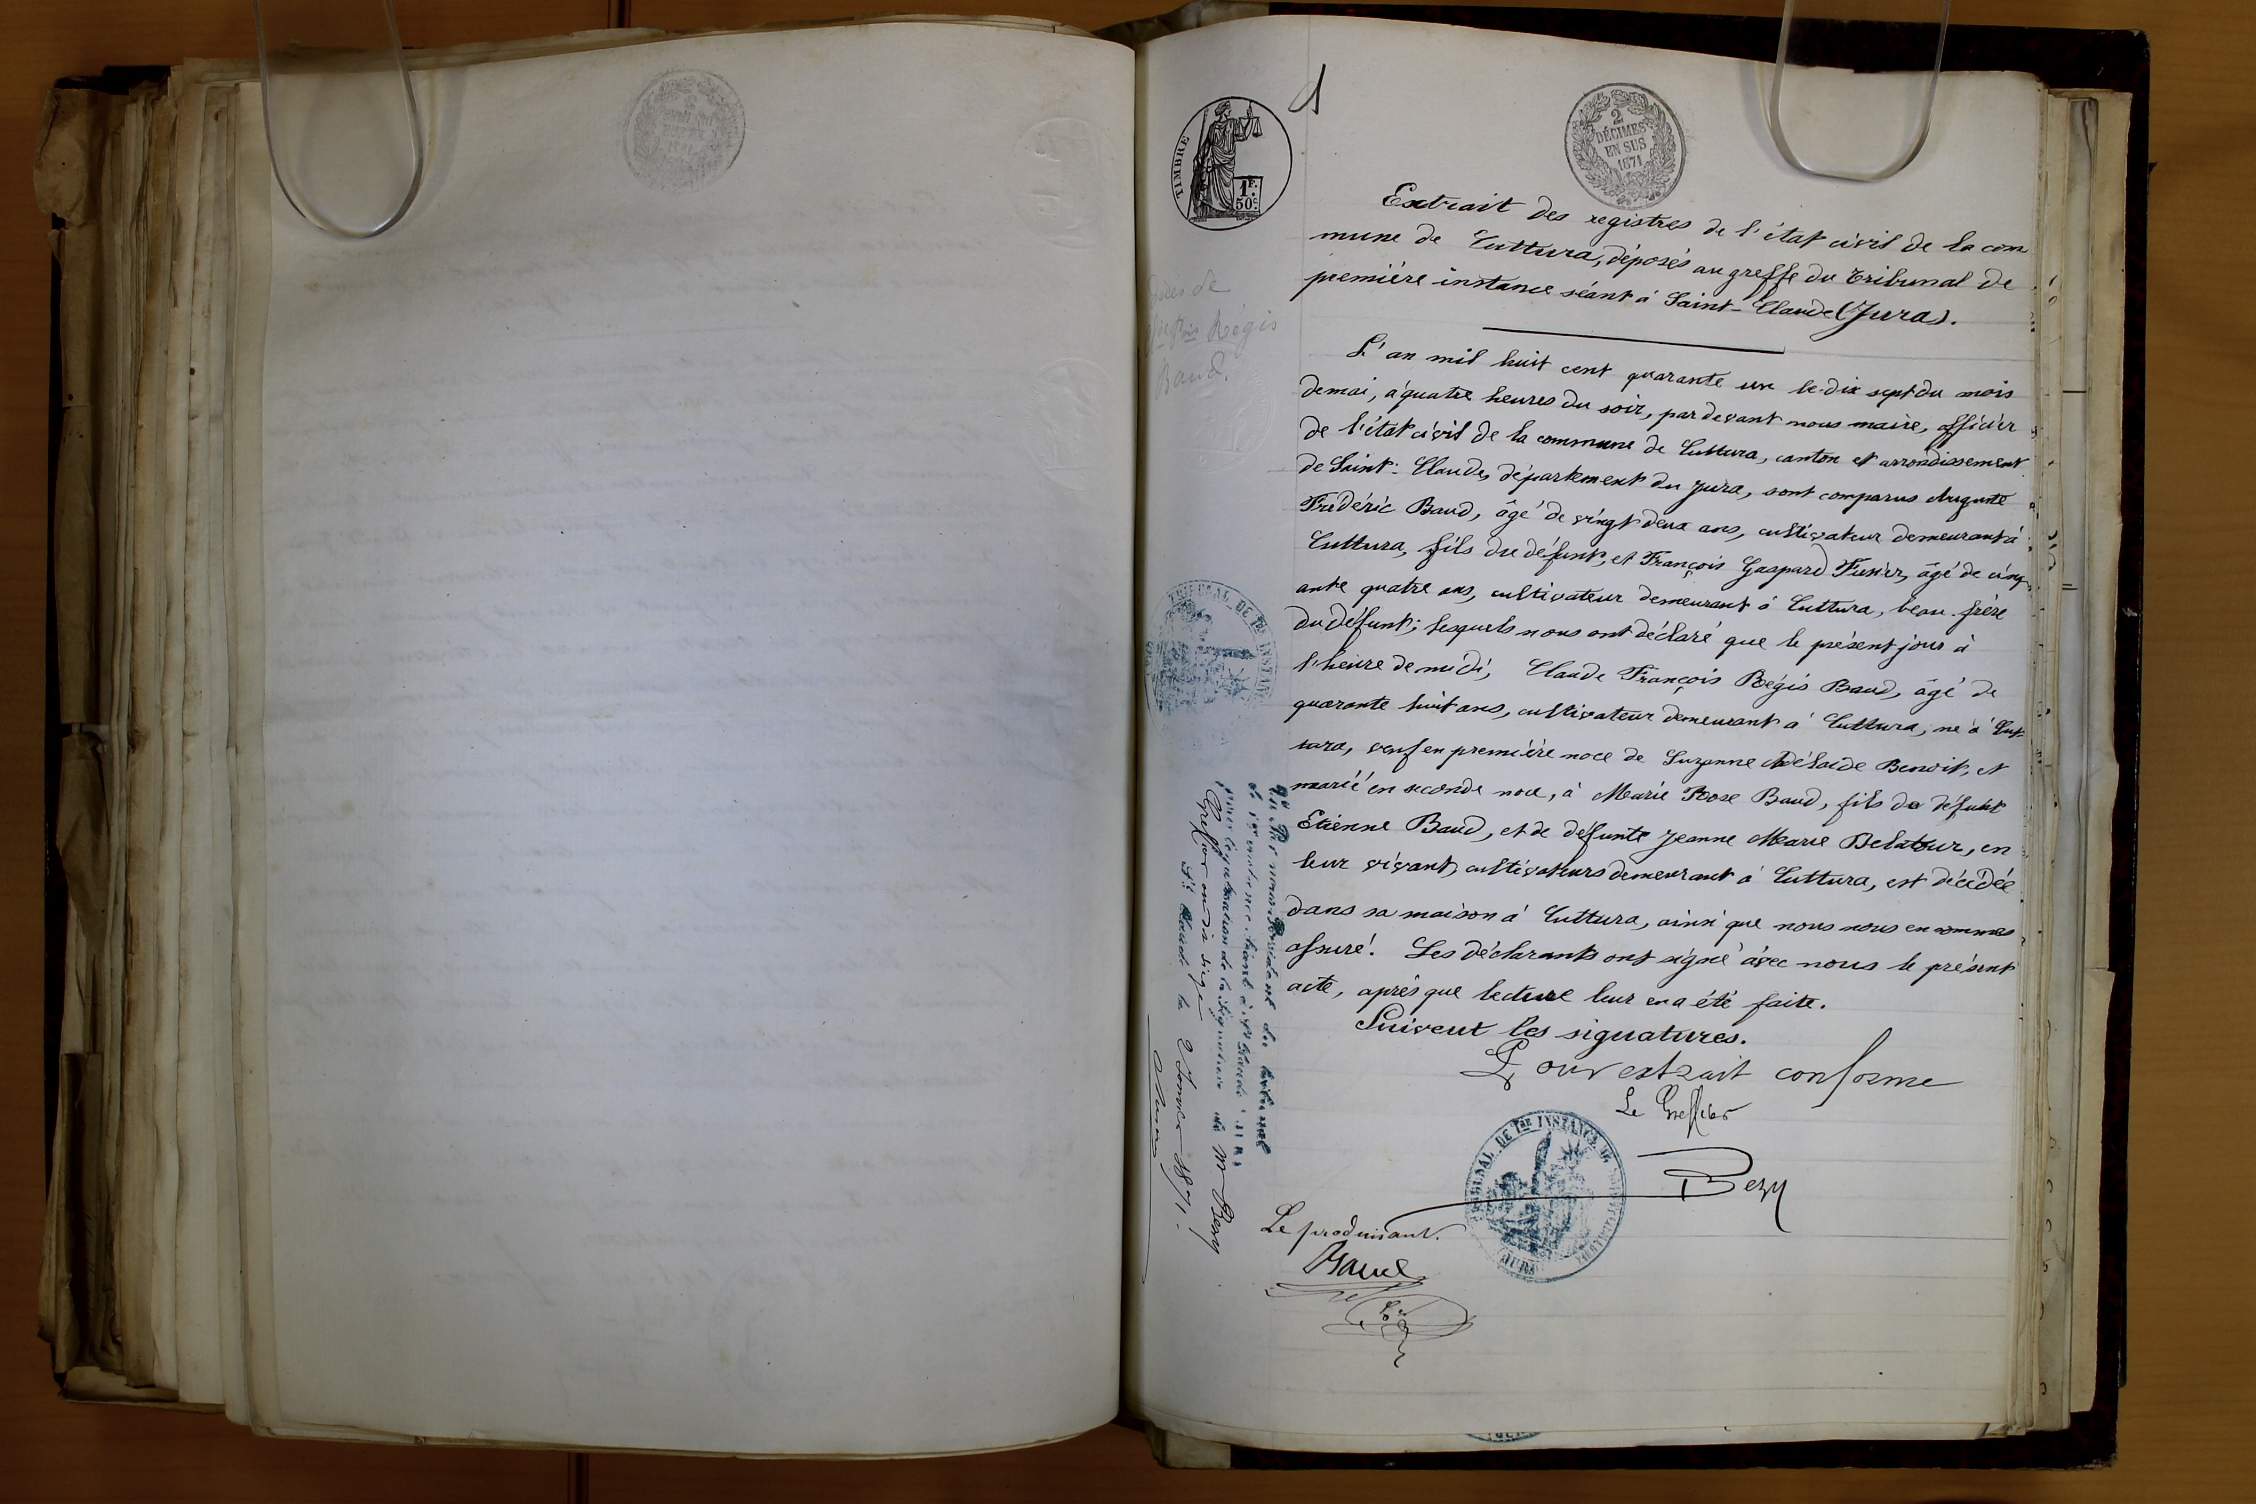 2
DÉCIMES
EN SUS
1871
TIMBRE
1F.
50c
Extrait des registres de l'état civil de la com
mune de Cuttura, déposés au greffe du Tribunal de
première instance séant à Saint-Claude (Jura).
Régis
Baud.
L'an mil huit cent quarante un le dix sept du mois
de mai, à quatre heures du soir, par devant nous maire, officier
de l'état civil de la commune de Cuttura, canton et arrondissement
de Saint-Claude, département du Jura, sont comparus Auguste
Frédéric Baud, âgé de vingt deux ans, cultivateur demeurant à
Cuttura, fils du défunt, et François Gaspard Fusier, âgé de cinq
ante quatre ans, cultivateur demeurant à Cuttura, beau-frère
du défunt; lesquels nous ont déclaré que le présent jour à
l'heure de midi, Claude François Régis Baud, âgé de
quarante huit ans, cultivateur demeurant à Cuttura, né à Cut
tura, veuf en première noce de Suzanne Adélaide Benoit, et
marié en seconde noce, à Marie Rose Baud, fils de défunt
Etienne Baud, et de défunte Jeanne Marie Delatour, en
leur vivant, cultivateurs demeurant à Cuttura, est décédée
dans sa maison à Cuttura, ainsi que nous nous en sommes
assuré. Les déclarants ont signé avec nous le présent
acte, après que lecture leur en a été faite.
Suivent les signatures.
Pour extrait conforme
Le Greffier
Bezy
TRIBUNAL DE 1ère INSTANCE
Vu par nous Président du tribunal
de 1ère instance séant à St Claude
pour légalisation de la signature de Mr Bezy
Greffier au dit siège
St Claude le 2 1871.
TRIBUNAL DE 1ère INSTANCE
(JURA)
Le produisant.
Baud